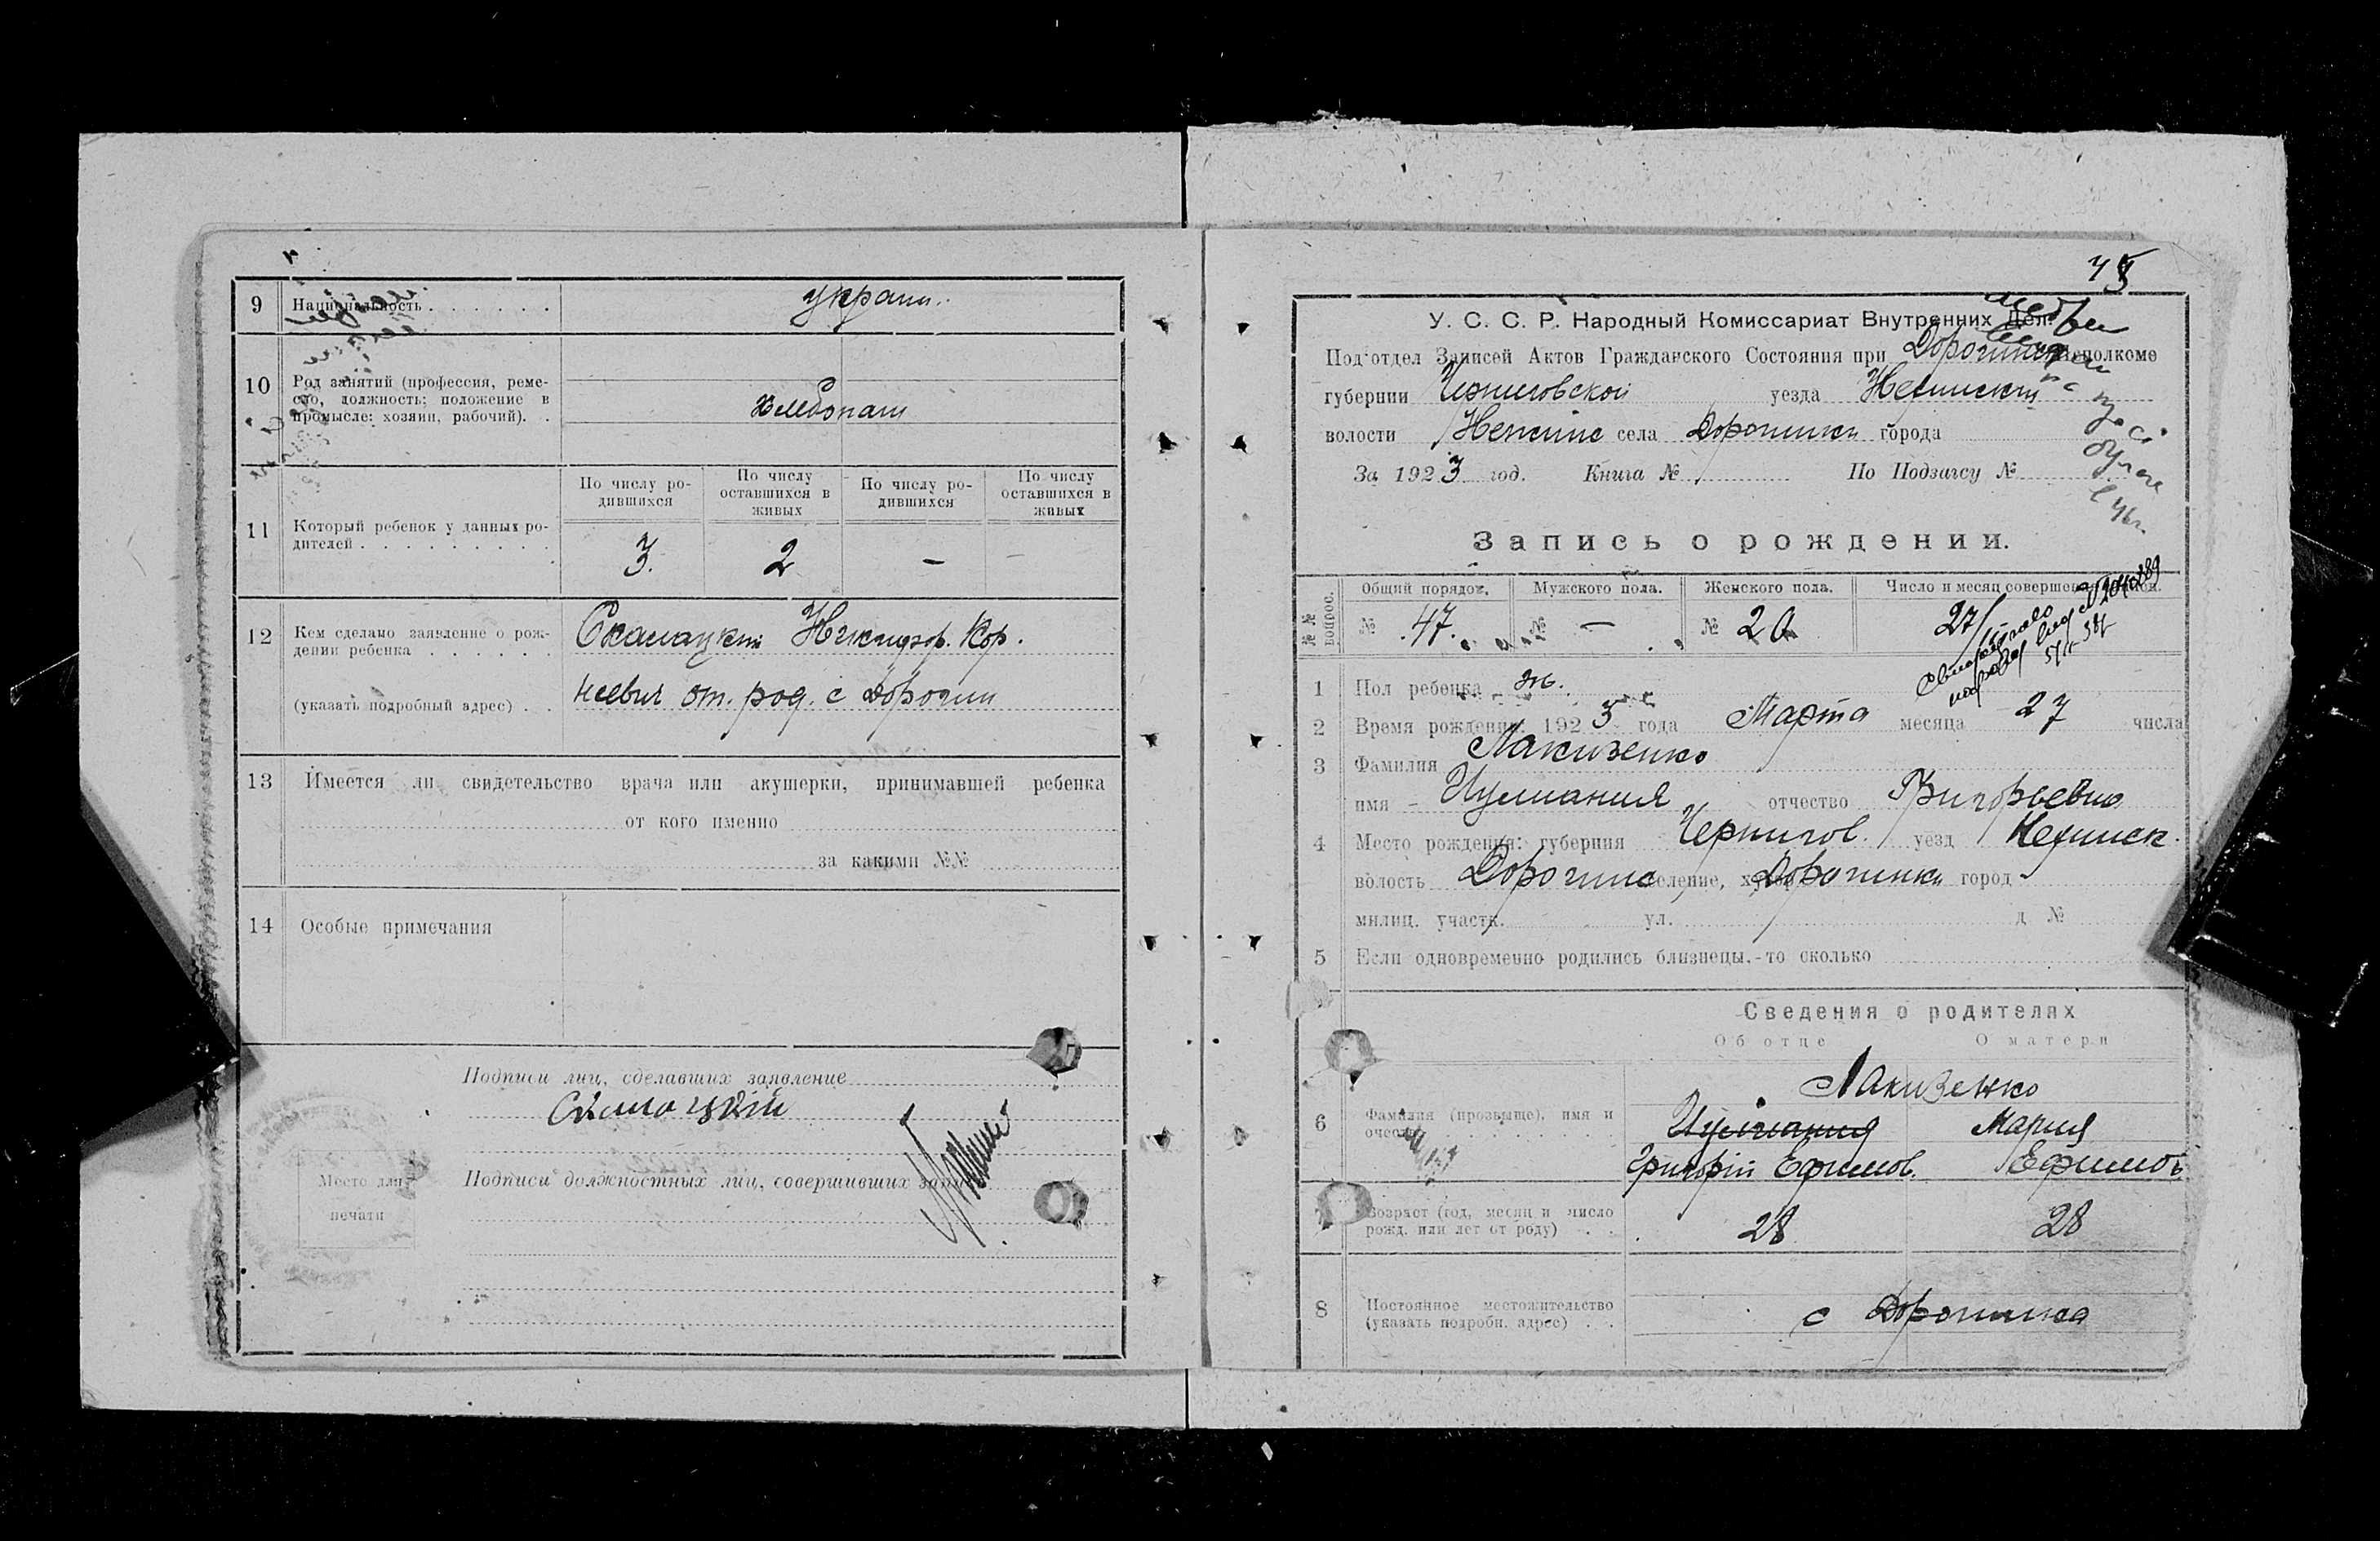 9 Национальность . . . . . . украин.
10 Род занятий (профессия, реме-
сло, должность; положение в
промысле: хозяин, рабочий). .
Хлебопаш
11 Который ребенок у данных ро-
дителей . . . . . . . . .
По числу ро-
дившихся
По числу
оставшихся в
живых
По числу ро-
дившихся
По числу
оставшихся в
живых
3. 2 – –
12 Кем сделано заявление о рож-
дении ребенка . . . . . .
(указать подробный адрес) . .
Кор.
от. род. с Дорогин
13 Имеется ли свидетельство врача или акушерки, принимавшей ребенка
от кого именно
за какими №№
14 Особые примечания
Подписи лиц, сделавших заявление
Подписи должностных лиц, совершивших запись
Место для
печати
У. С. С. Р. Народный Комиссариат Внутренних Дел.
Под'отдел Записей Актов Гражданского Состояния при Исполкоме
губернии Черниговской уезда Нежинский
волости села Дорогинки города
За 1923 год. Книга № По Подзагсу №
Запись о рождении.
№№ вопрос.
Общий порядок. Мужского пола. Женского пола. Число и месяц совершения записи.
№ 47. № – № 20 27/
1 Пол ребенка ж.
2 Время рождения: 1923 года Марта месяца 27 числа
3 Фамилия Лакизенко
имя Иулиания отчество Григорьевна
4 Место рождения: губерния Чернигов. уезд Нежинск.
волость Дорогинс селение, хутор Дорогинки город
милиц. участк. ул. д №
5 Если одновременно родились близнецы,-то сколько
Сведения о родителях
Об отце О матери
Лакизенко
6 Фамилия (прозвыще), имя и
очество . . . . . . . . .
Иулиания Мария
Григорій Ефимов. Ефимов
7 Возраст (год, месяц и число
рожд. или лет от роду) . .
28 28
8 Постоянное местожительство
(указать подробн. адрес) . .
с Дорогинка